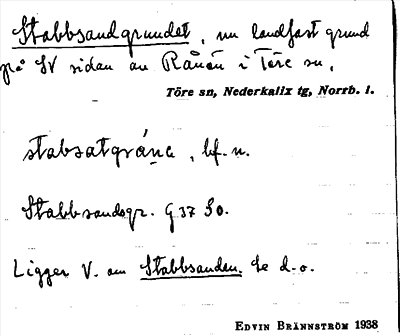 Stabbsandgrundet, nu landfast grund
på SV sidan av Rånön i Töre sn,
Töre sn, Nederkalix tg, Norrb. l.
stabsatgrána, bf. n.
Stabbsandsgr. G 37 SO.
Ligger V. om Stabbsanden. Se d. o.
EDVIN BRÄNNSTRÖM 1938